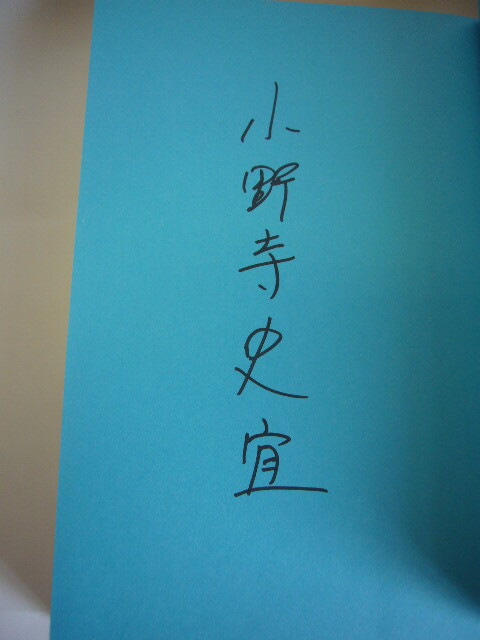 小野寺史宜